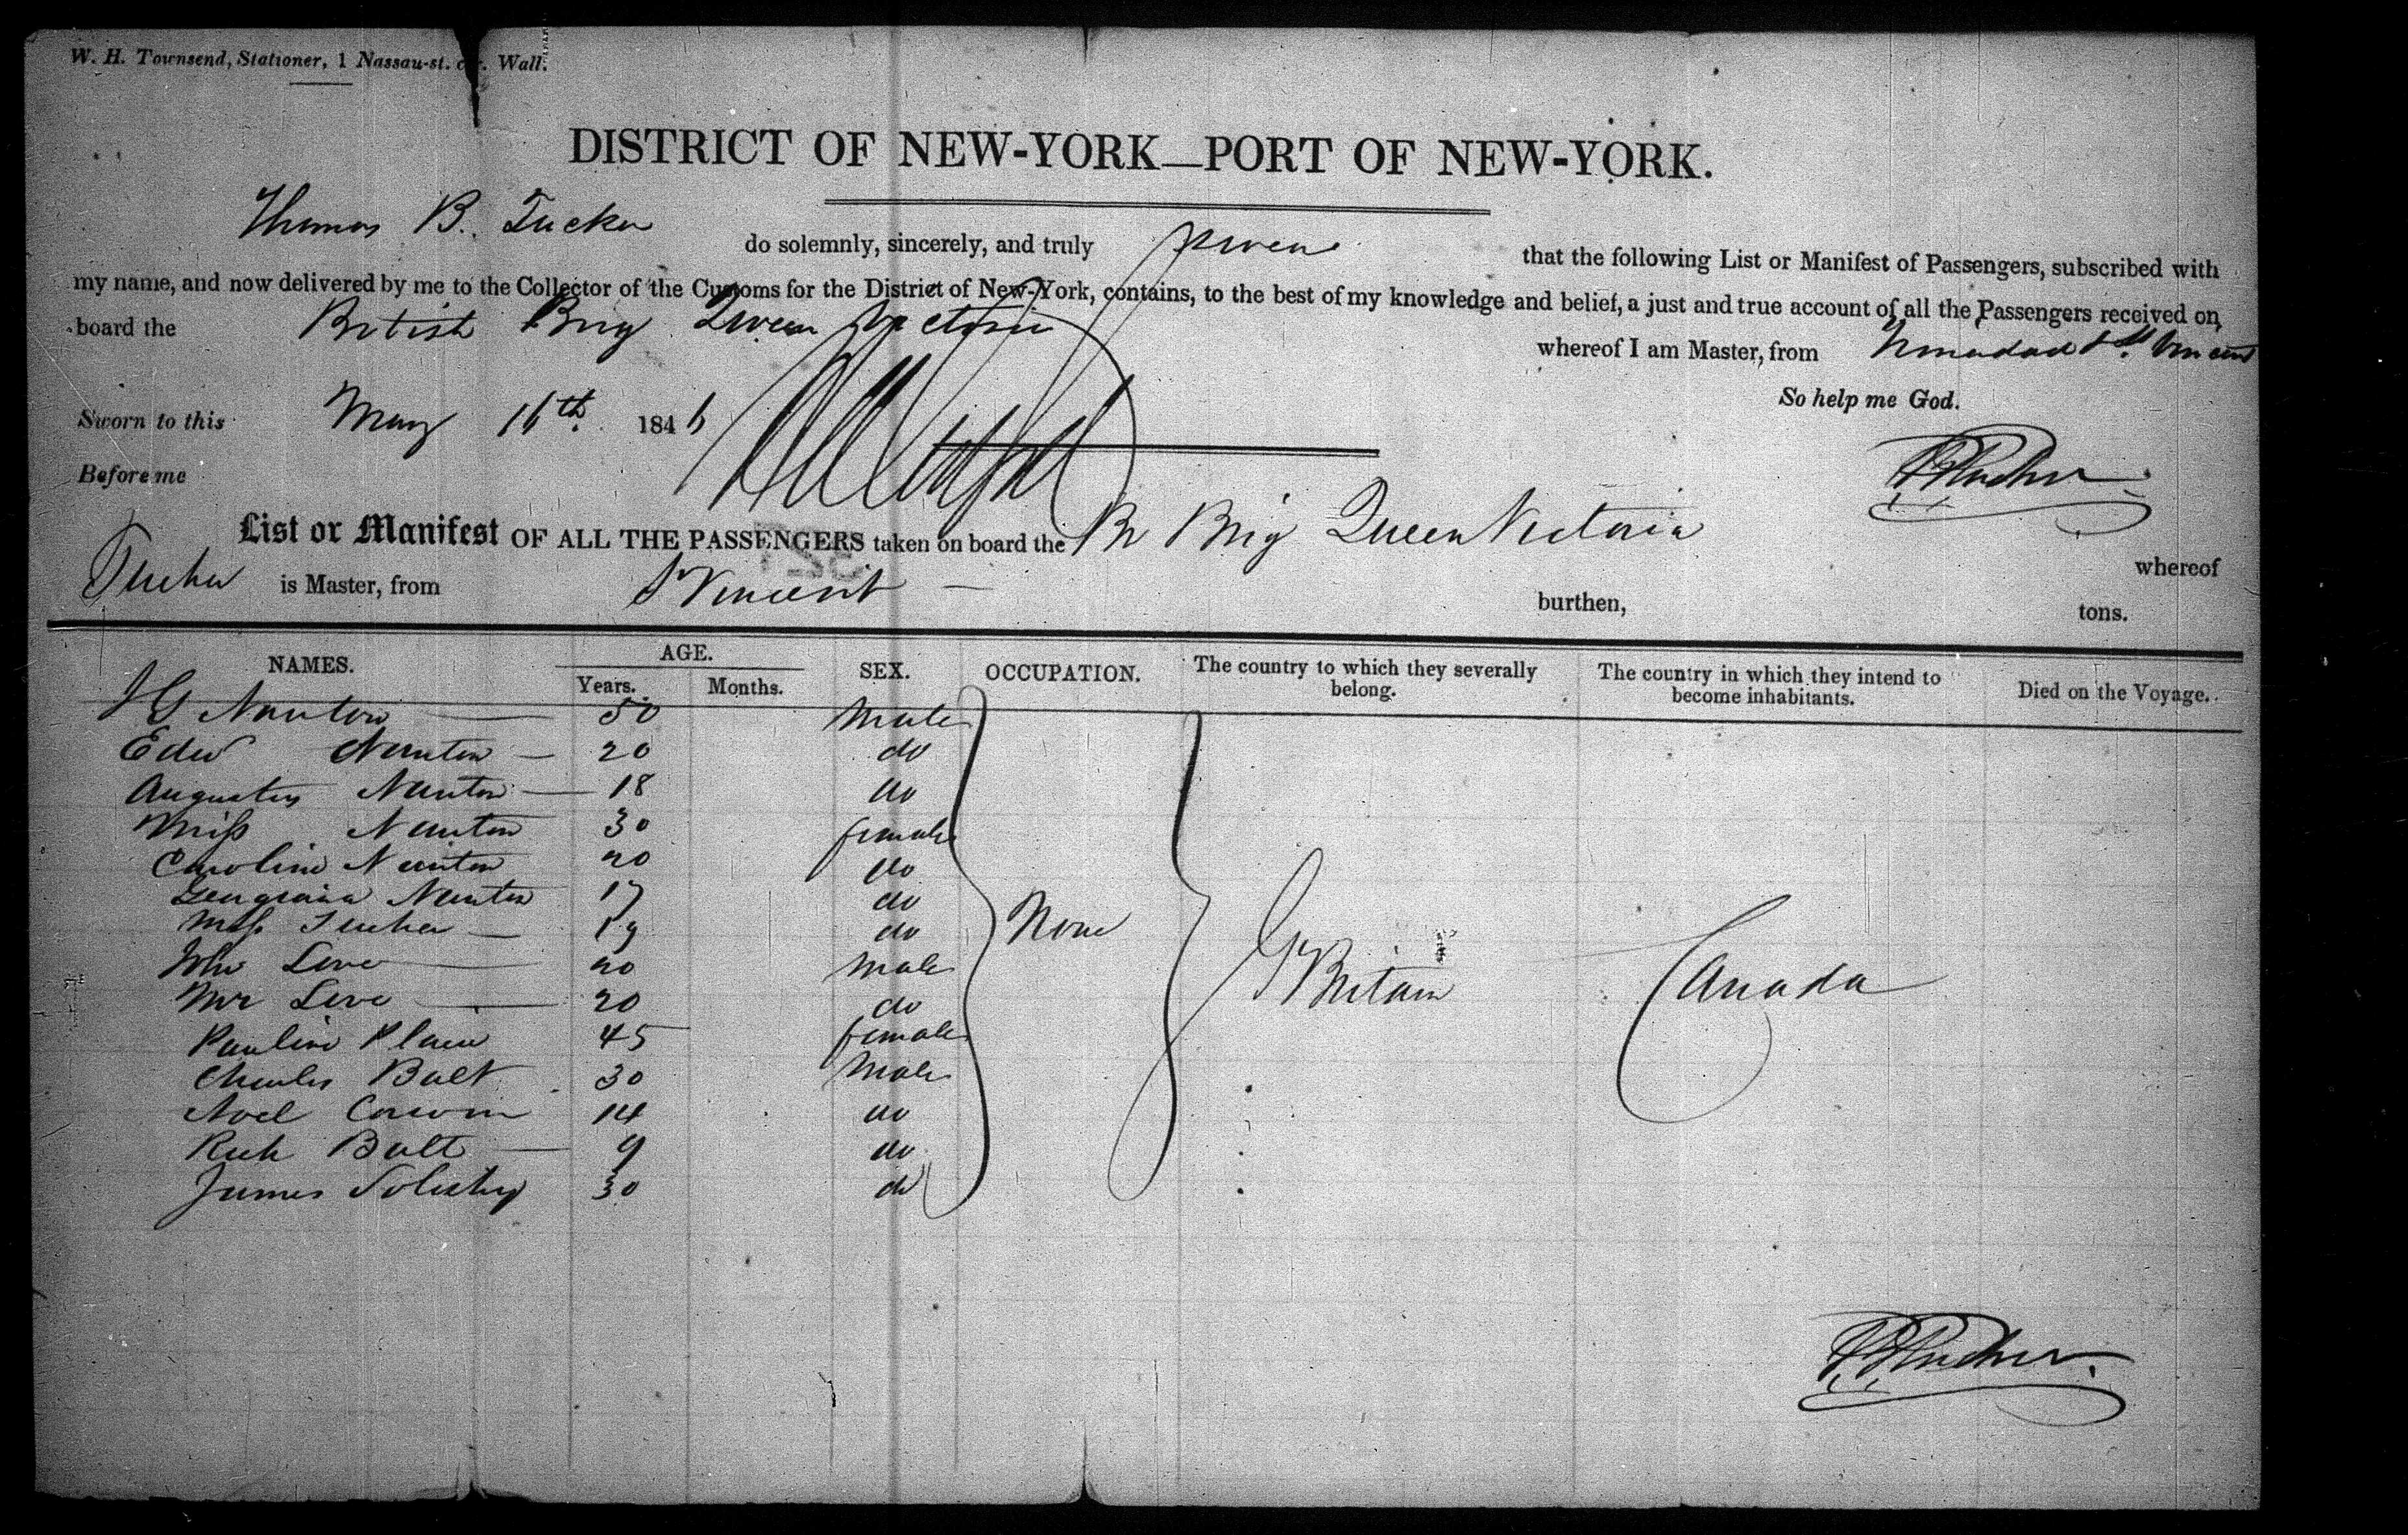 W. H. Townsend, Stationer, 1 Nassau-st. cor. Wall.
DISTRICT OF NEW-YORK—PORT OF NEW-YORK.
Thomas B. Tucker do solemnly, sincerely, and truly swear that the following List or Manifest of Passengers, subscribed with
my name, and now delivered by me to the Collector of the Customs for the District of New-York, contains, to the best of my knowledge and belief, a just and true account of all the Passengers received on
board the British Brig Queen Victoria whereof I am Master, from Trinidad & St Vincent
So help me God.
Sworn to this May 16th 1846
Before me
List or Manifest OF ALL THE PASSENGERS taken on board the Br Brig Queen Victoria whereof
Tucker is Master, from St Vincent burthen, tons.
NAMES. AGE. Years. Months. SEX. OCCUPATION. The country to which they severally belong. The country in which they intend to become inhabitants. Died on the Voyage.
J G Nanton 50 Male
Edw Nanton 20 do
Augustus Nanton 18 do
Miss Nanton 30 female
Caroline Nanton 20 do
Nanton 17 do
Miss Tucker 19 do None
John Love 20 Male
Mr Love 20 do Gt Britain Canada
Pauline 45 female
Charles Balt 30 Male
Noel 14 do
Rich Balt 9 do
James 30 do